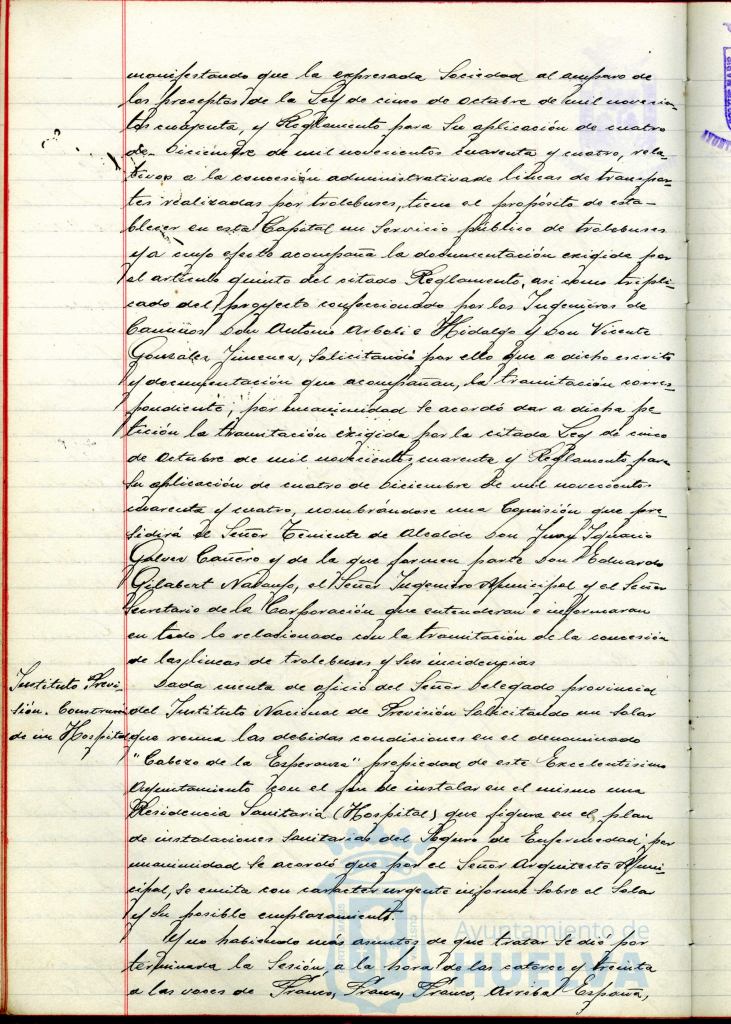 manifestando que la expresada Sociedad al amparo de
los preceptos de la Ley de cinco de Octubre de mil novecien-
tos cuarenta, y Reglamento para su aplicación de cuatro
de Diciembre de mil novecientos cuarenta y cuatro, rela-
tivos a la concesión administrativa de lineas de transpor-
tes realizadas por trolebuses, tiene el propósito de esta-
blecer en esta Capital un Servicio público de trolebuses
y a cuyo efecto acompaña la documentación exigida por
el articulo quinto del citado Reglamento, asi como tripli-
cado del proyecto confeccionado por los Ingenieros de
Caminos Don Antonio Arboli e Hidalgo y Don Vicente
González Jimenez, solicitando por ello que a dicho escrito
y documentación que acompañan, la tramitación corres-
pondiente; por unanimidad se acordó dar a dicha pe-
tición la tramitación exigida por la citada Ley de cinco
de Octubre de mil novecientos cuarenta y Reglamento para
su aplicación de cuatro de Diciembre de mil novecientos
cuarenta y cuatro, nombrándose una Comisión que pre-
sidirá el Señor Teniente de Alcalde Don Juan Ignacio
Galvez Cañero y de la que formen parte Don Eduardo
Gilabert Naranjo, el Señor Ingeniero Municipal y el Señor
Secretario de la Corporación que entenderan e informaran
en todo lo relacionado con la tramitación de la concesión
de las lineas de trolebuses y sus incidencias
Instituto Previ-
sión.
de un Hospital
Dada cuenta de oficio del Señor Delegado provincial
del Instituto Nacional de Previsión solicitando un solar
que reuna las debidas condiciones en el denominado
"Cabezo de la Esperanza" propiedad de este Excelentisimo
Ayuntamiento con el fin de instalar en el mismo una
Residencia Sanitaria (Hospital) que figura en el plan
de instalaciones Sanitarias del Seguro de Enfermedad; por
unanimidad se acordó que por el Señor Arquitecto Muni-
cipal, se emita con carácter urgente informe sobre el Solar
y su posible emplazamiento.
Y no habiendo más asuntos de que tratar se dió por
terminada la Sesión, a la hora de las catorce y treinta
a las voces de Franco, Franco, Franco, Arriba España,
Ayuntamiento de
HUELVA